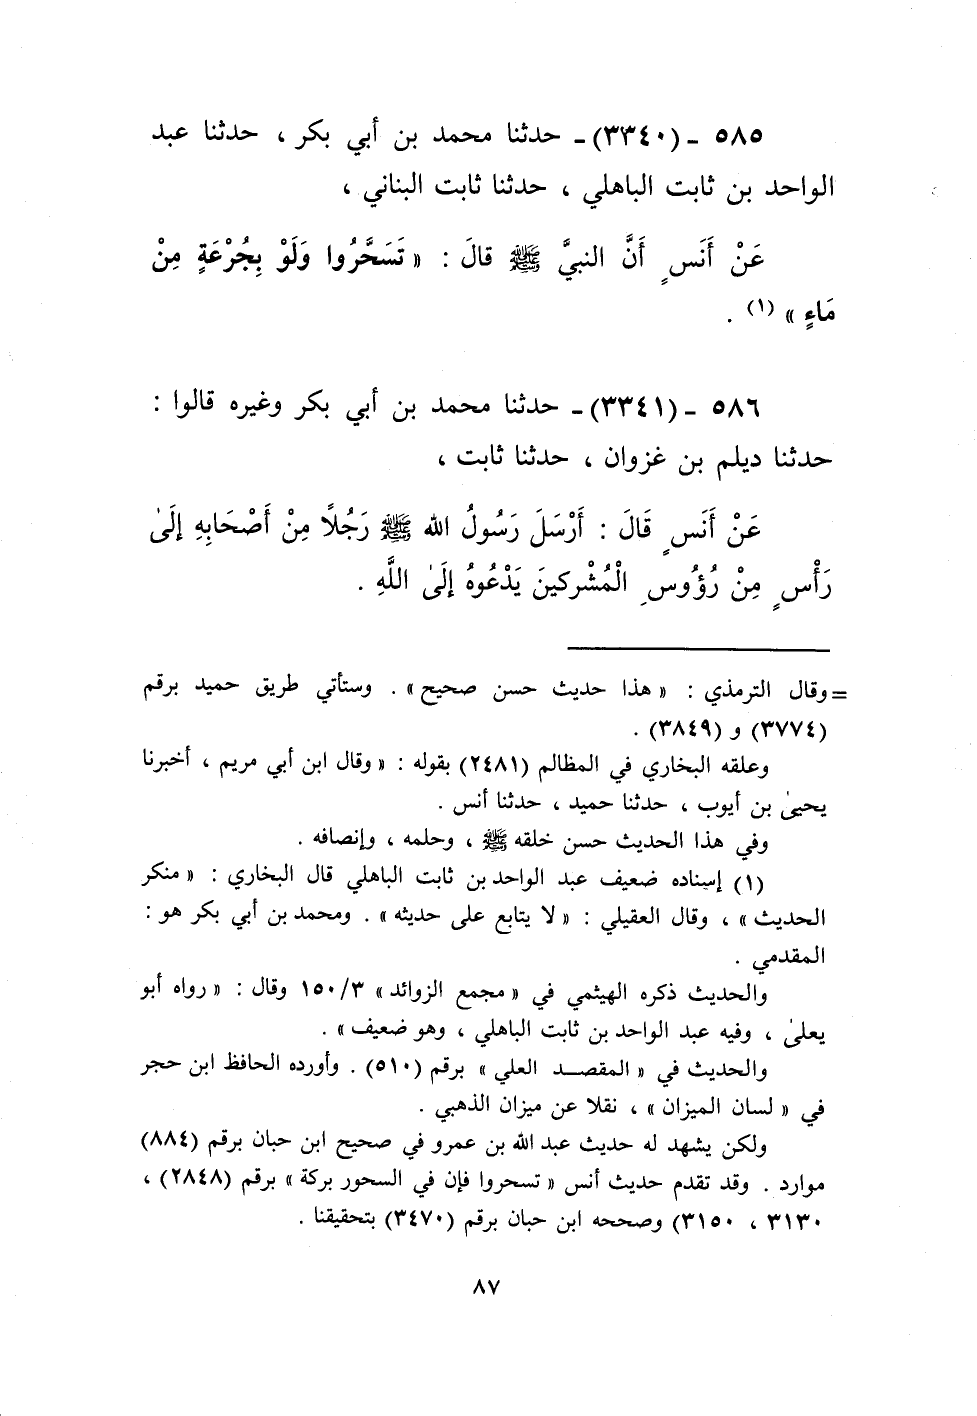 ٥٨٥ ـ (٣٣٤٠)ـ حدثنا محمد بن أبي بكر ، حدثنا عبد
الواحد بن ثابت الباهلي ، حدثنا ثابت البناني ،
عَنْ أَنَسٍ أَنَّ النبيَّ ﷺ قالَ : « تَسَحَّرُوا وَلَوْ بِجُرْعَةٍ مِنْ
مَاءٍ » (١) .
٥٨٦ ـ (٣٣٤١)ـ حدثنا محمد بن أبي بكر وغيره قالوا :
حدثنا ديلم بن غزوان ، حدثنا ثابت ،
عَنْ أَنَسٍ قَالَ : أَرْسَلَ رَسُولُ الله ﷺ رَجُلًا مِنْ أَصْحَابِهِ إِلَىٰ
رَأْسٍ مِنْ رُؤُوسِ الْمُشْركينَ يَدْعُوهُ إِلَىٰ اللَّهِ .
= وقال الترمذي : « هذا حديث حسن صحيح » . وستأتي طريق حميد برقم
(٣٧٧٤) و (٣٨٤٩) .
وعلقه البخاري في المظالم (٢٤٨١) بقوله : « وقال ابن أبي مريم ، أخبرنا
يحيىٰ بن أيوب ، حدثنا حميد ، حدثنا أنس .
وفي هذا الحديث حسن خلقه ﷺ ، وحلمه ، وإنصافه .
(١) إسناده ضعيف عبد الواحد بن ثابت الباهلي قال البخاري : « منكر
الحديث » ، وقال العقيلي : « لا يتابع على حديثه » . ومحمد بن أبي بكر هو :
المقدمي .
والحديث ذكره الهيثمي في « مجمع الزوائد » ١٥٠/٣ وقال : « رواه أبو
يعلىٰ ، وفيه عبد الواحد بن ثابت الباهلي ، وهو ضعيف » .
والحديث في « المقصد العلي » برقم (٥١٠) . وأورده الحافظ ابن حجر
في « لسان الميزان » ، نقلا عن ميزان الذهبي .
ولكن يشهد له حديث عبد الله بن عمرو في صحيح ابن حبان برقم (٨٨٤)
موارد . وقد تقدم حديث أنس « تسحروا فإن في السحور بركة » برقم (٢٨٤٨) ،
٣١٣٠ ، ٣١٥٠) وصححه ابن حبان برقم (٣٤٧٠) بتحقيقنا .
٨٧